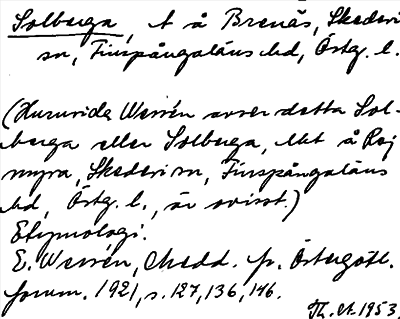 Solberga, t å Brenäs, Skedevi
sn, Finspångaläns hd, Östg. l.
(Huruvida Wessén avser detta Sol-
berga eller Solberga, lht å Rej
myra, Skedevi sn, Finspångaläns
hd, Östg. l., är ovisst.)
Etymologi.
E. Wessén, Medd. fr. Östergötl.
fornm. 1921, s. 127, 136, 146.
1953.